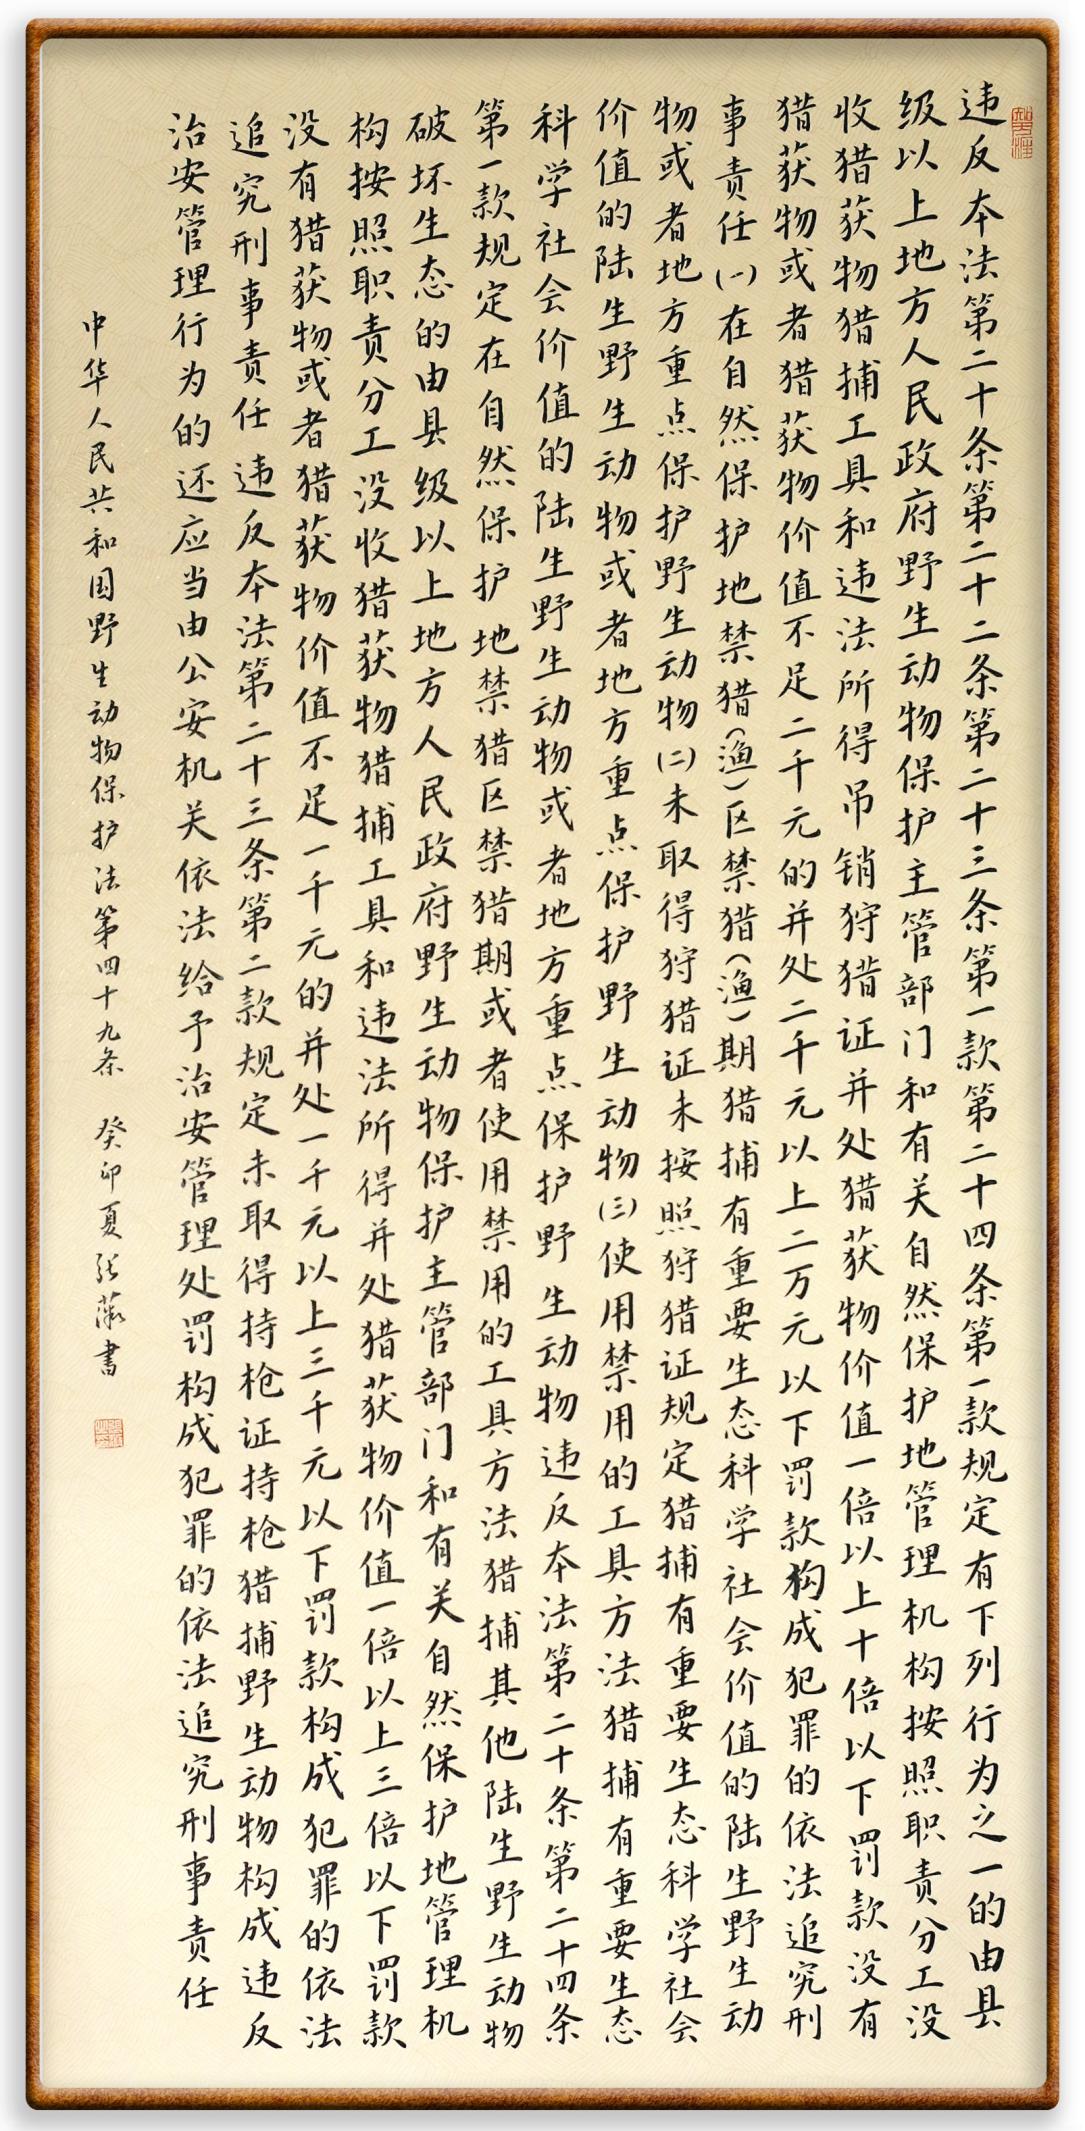 违反本法第二十条第二十二条第二十三条第一款第二十四条第一款规定有下列行为之一的由县
级以上地方人民政府野生动物保护主管部门和有关自然保护地管理机构按照职责分工没
收猎获物猎捕工具和违法所得吊销狩猎证并处猎获物价值一倍以上十倍以下罚款没有
猎获物或者猎获物价值不足二千元的并处二千元以上二万元以下罚款构成犯罪的依法追究刑
事责任(一)在自然保护地禁猎(渔)区禁猎(渔)期猎捕有重要生态科学社会价值的陆生野生动
物或者地方重点保护野生动物(二)未取得狩猎证未按照狩猎证规定猎捕有重要生态科学社会
价值的陆生野生动物或者地方重点保护野生动物(三)使用禁用的工具方法猎捕有重要生态
科学社会价值的陆生野生动物或者地方重点保护野生动物违反本法第二十条第二十四条
第一款规定在自然保护地禁猎区禁猎期或者使用禁用的工具方法猎捕其他陆生野生动物
破坏生态的由县级以上地方人民政府野生动物保护主管部门和有关自然保护地管理机
构按照职责分工没收猎获物猎捕工具和违法所得并处猎获物价值一倍以上三倍以下罚款
没有猎获物或者猎获物价值不足一千元的并处一千元以上三千元以下罚款构成犯罪的依法
追究刑事责任违反本法第二十三条第二款规定未取得持枪证持枪猎捕野生动物构成违反
治安管理行为的还应当由公安机关依法给予治安管理处罚构成犯罪的依法追究刑事责任
中华人民共和国野生动物保护法第四十九条 癸卯夏张薇书